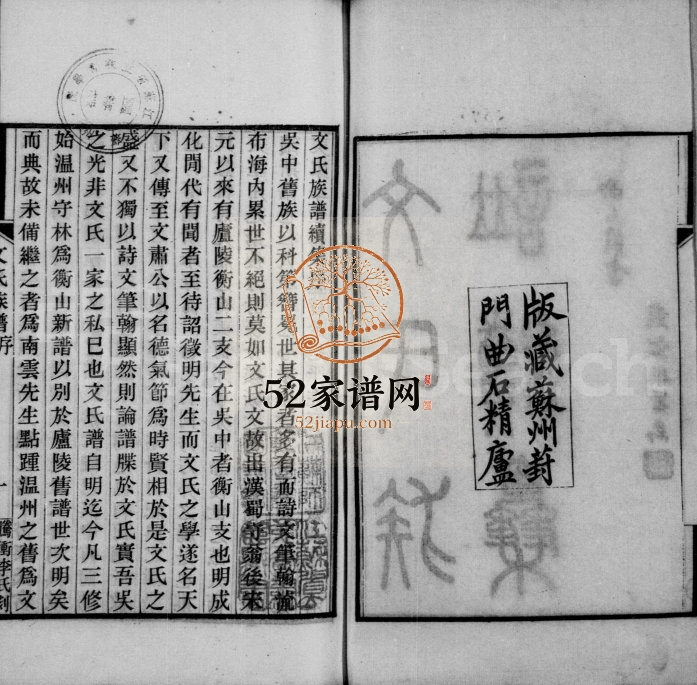 版藏蘇州葑
門曲石精廬
文氏族譜續集序
吳中舊族以科第簪纓世其家者多有而詩文筆翰流
布海內累世不絕則莫如文氏文故出漢蜀守翁後宋
元以來有廬陵衡山二支今在吳中者衡山支也明成
化間代有聞者至待詔徵明先生而文氏之學遂名天
下又傳至文肅公以名德氣節為時賢相於是文氏之
盛又不獨以詩文筆翰顯然則論譜牒於文氏實吾吳
之光非文氏一家之私巳也文氏譜自明迄今凡三修
始温州守林為衡山新譜以別於廬陵舊譜世次明矣
而典故未備繼之者為南雲先生點踵温州之舊為文
文氏族譜序
一
騰衝李氏刻
52家谱网
52jiapu.com